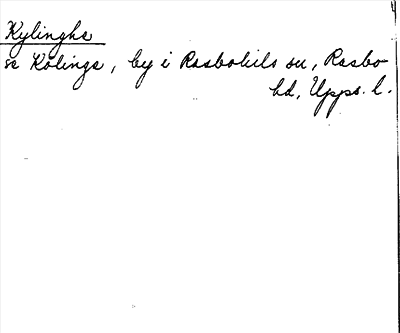 Kylinghs
se Kölinge, by i Rasbokils sn, Rasbo
hd, Upps. l.